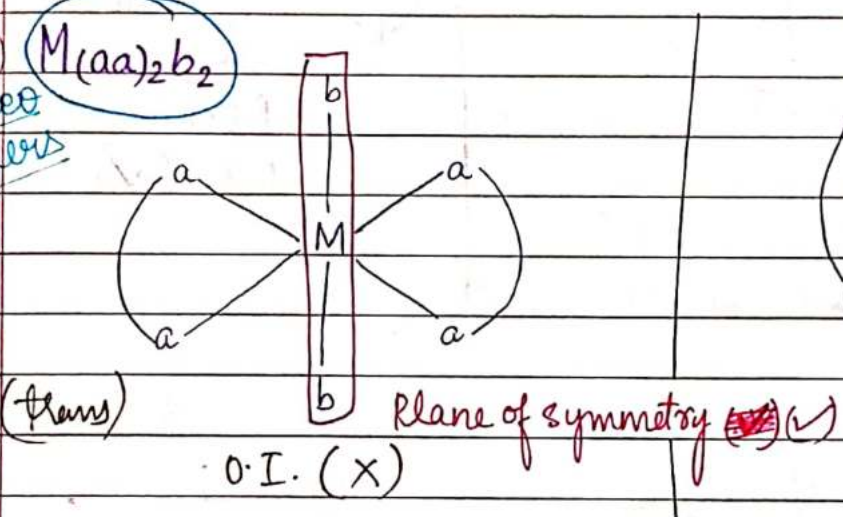 M(aa)₂b₂
b
a a
M
a a
b
(trans) Plane of symmetry (✓)
O.I. (X)